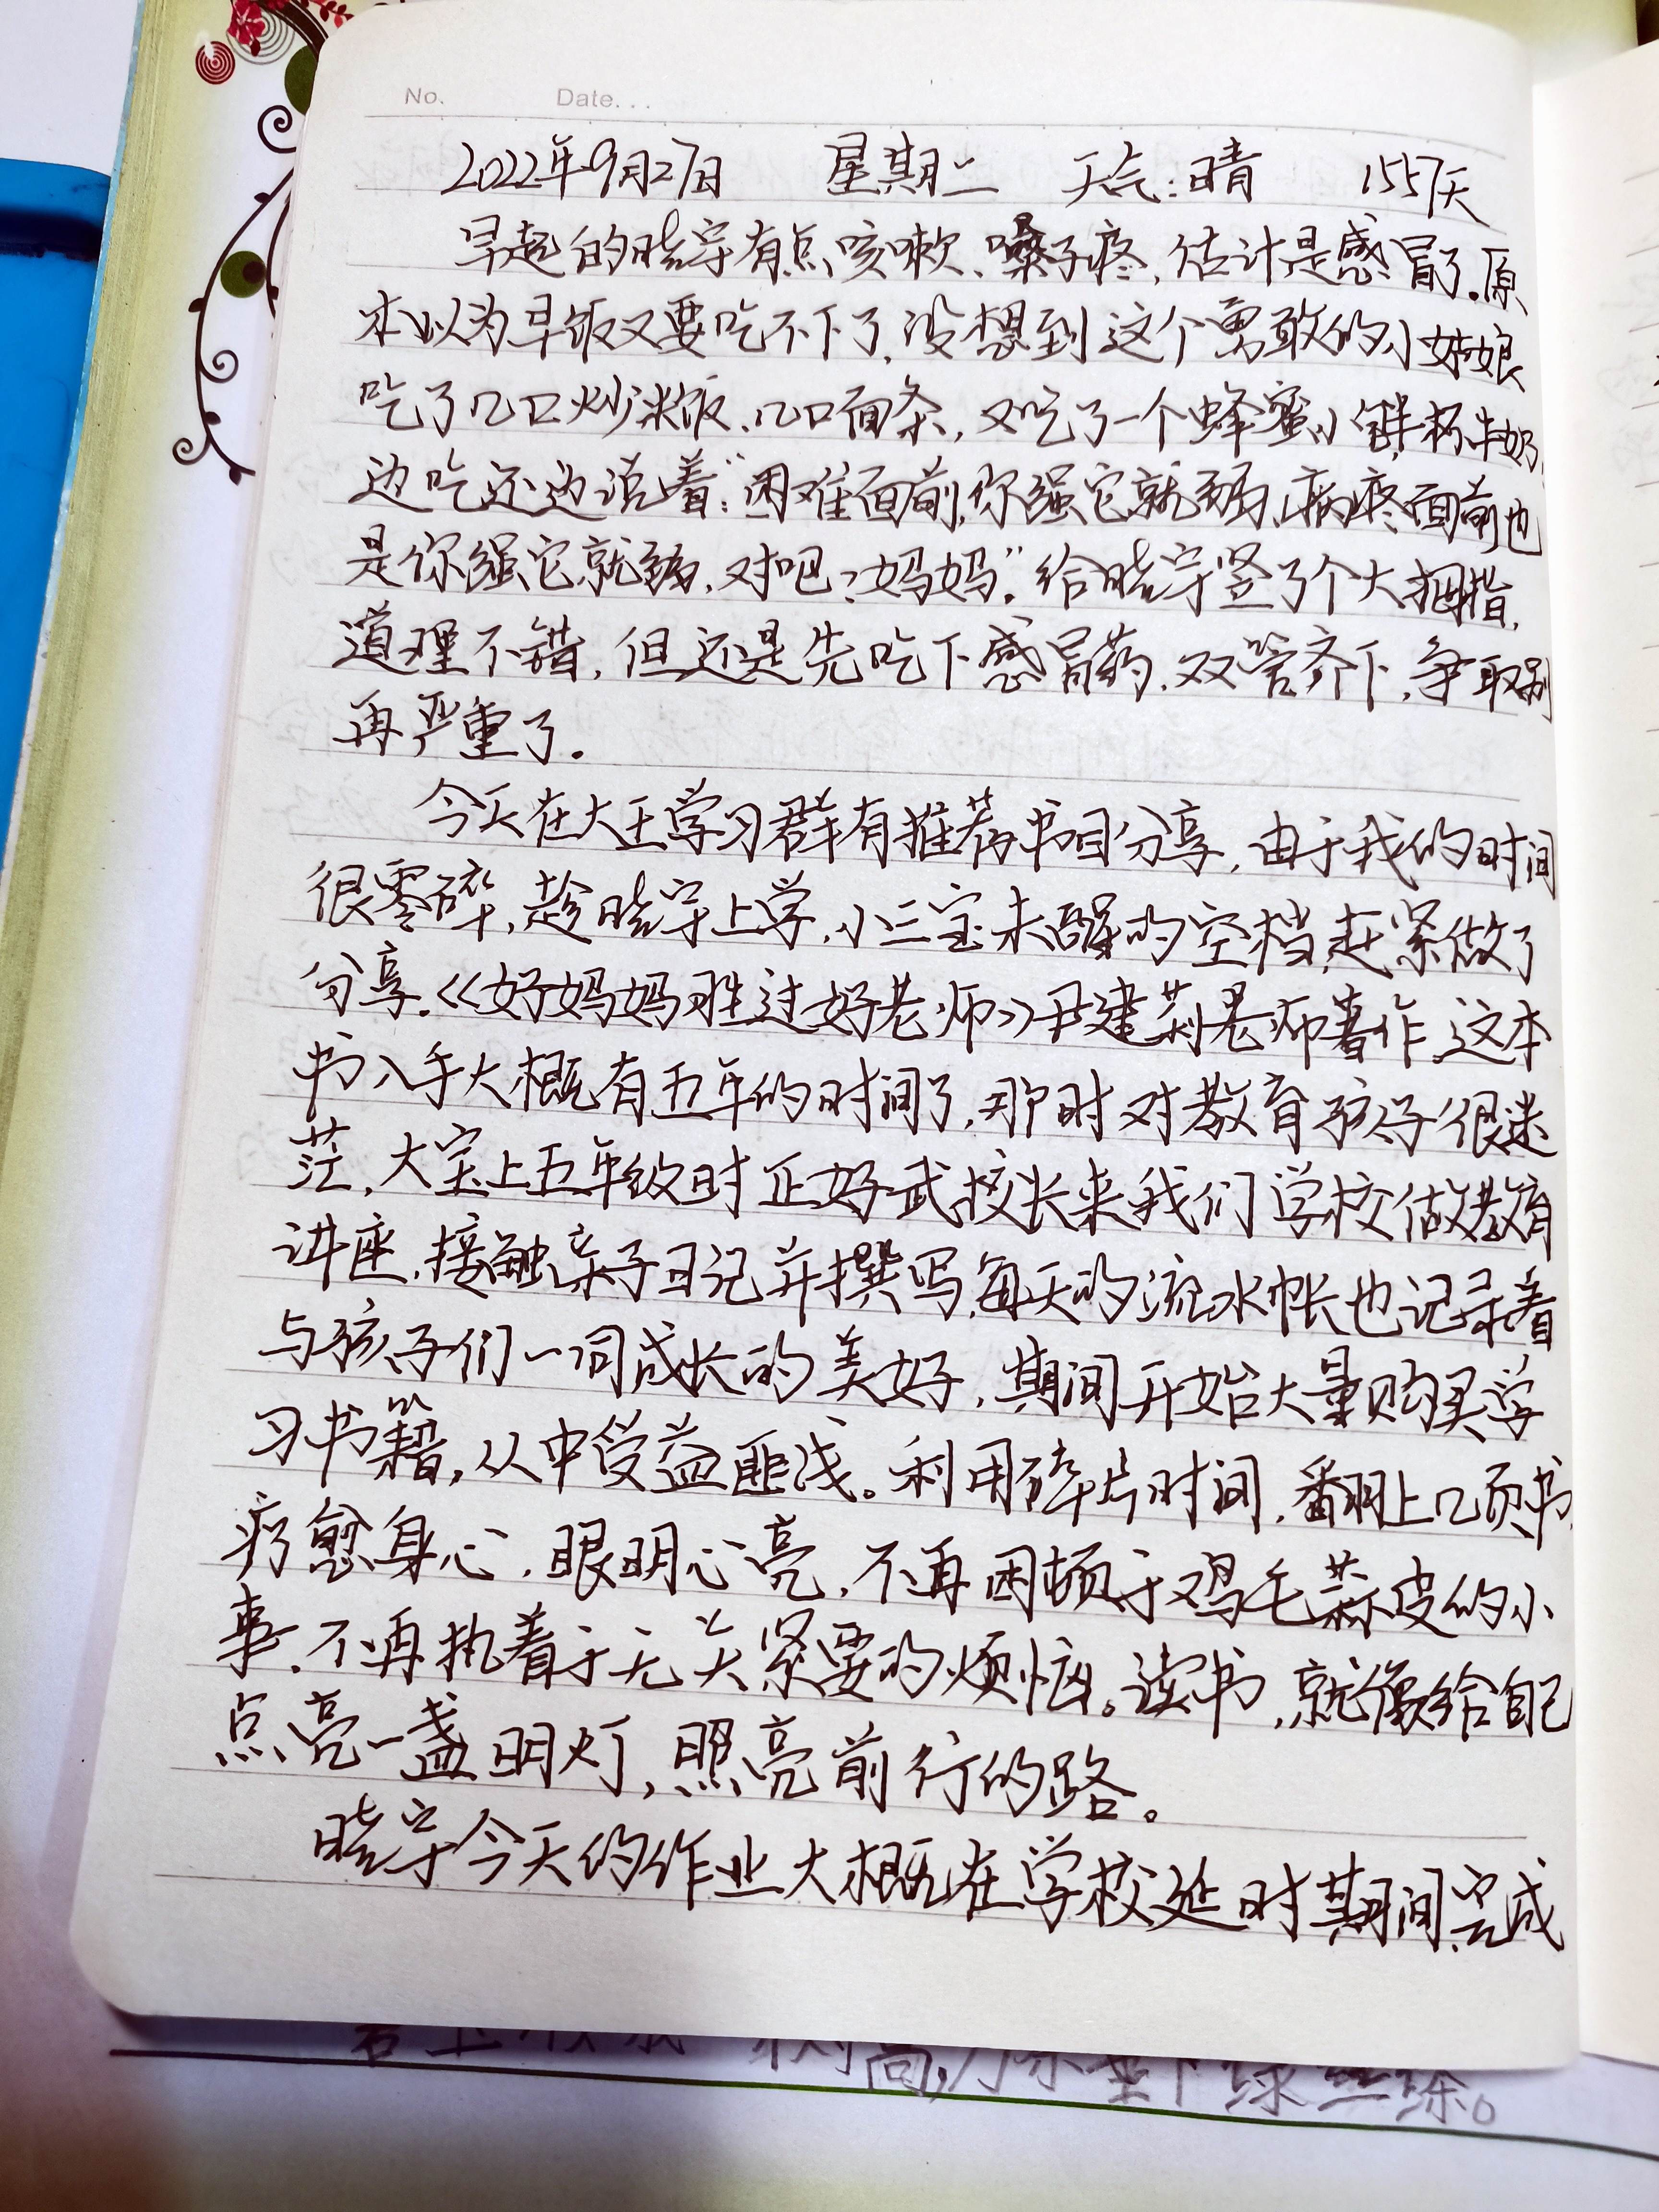 No. Date...
2022年9月27日 星期二 天气:晴 1557天
早起的晓宇有点咳嗽、嗓子疼,估计是感冒了。原
本以为早饭又要吃不下了,没想到这个勇敢的小姑娘
吃了几口炒米饭、几口面条,又吃了一个蜂蜜小 半杯牛奶,
边吃还边说着:“困难面前,你强它就弱,病疼面前也
是你强它就弱,对吧?妈妈”。给晓宇竖了个大拇指,
道理不错,但还是先吃下感冒药,双管齐下,争取别
再严重了。
今天在大王学习群有推荐书目分享,由于我的时间
很零碎,趁晓宇上学,小三宝未醒的空档,赶紧做了
分享。《好妈妈胜过好老师》尹建莉老师著作,这本
书入手大概有五年的时间了,那时对教育孩子很迷
茫,大宝上五年级时正好武校长来我们学校做教育
讲座,接触亲子日记并撰写,每天的流水帐也记录着
与孩子们一同成长的美好,期间开始大量购买学
习书籍,从中受益匪浅。利用碎片时间,翻上几页书,
疗愈身心,眼明心亮,不再困顿于鸡毛蒜皮的小
事,不再执着于无关紧要的烦恼。读书,就像给自己
点亮一盏明灯,照亮前行的路。
晓宇今天的作业大概在学校延时期间完成